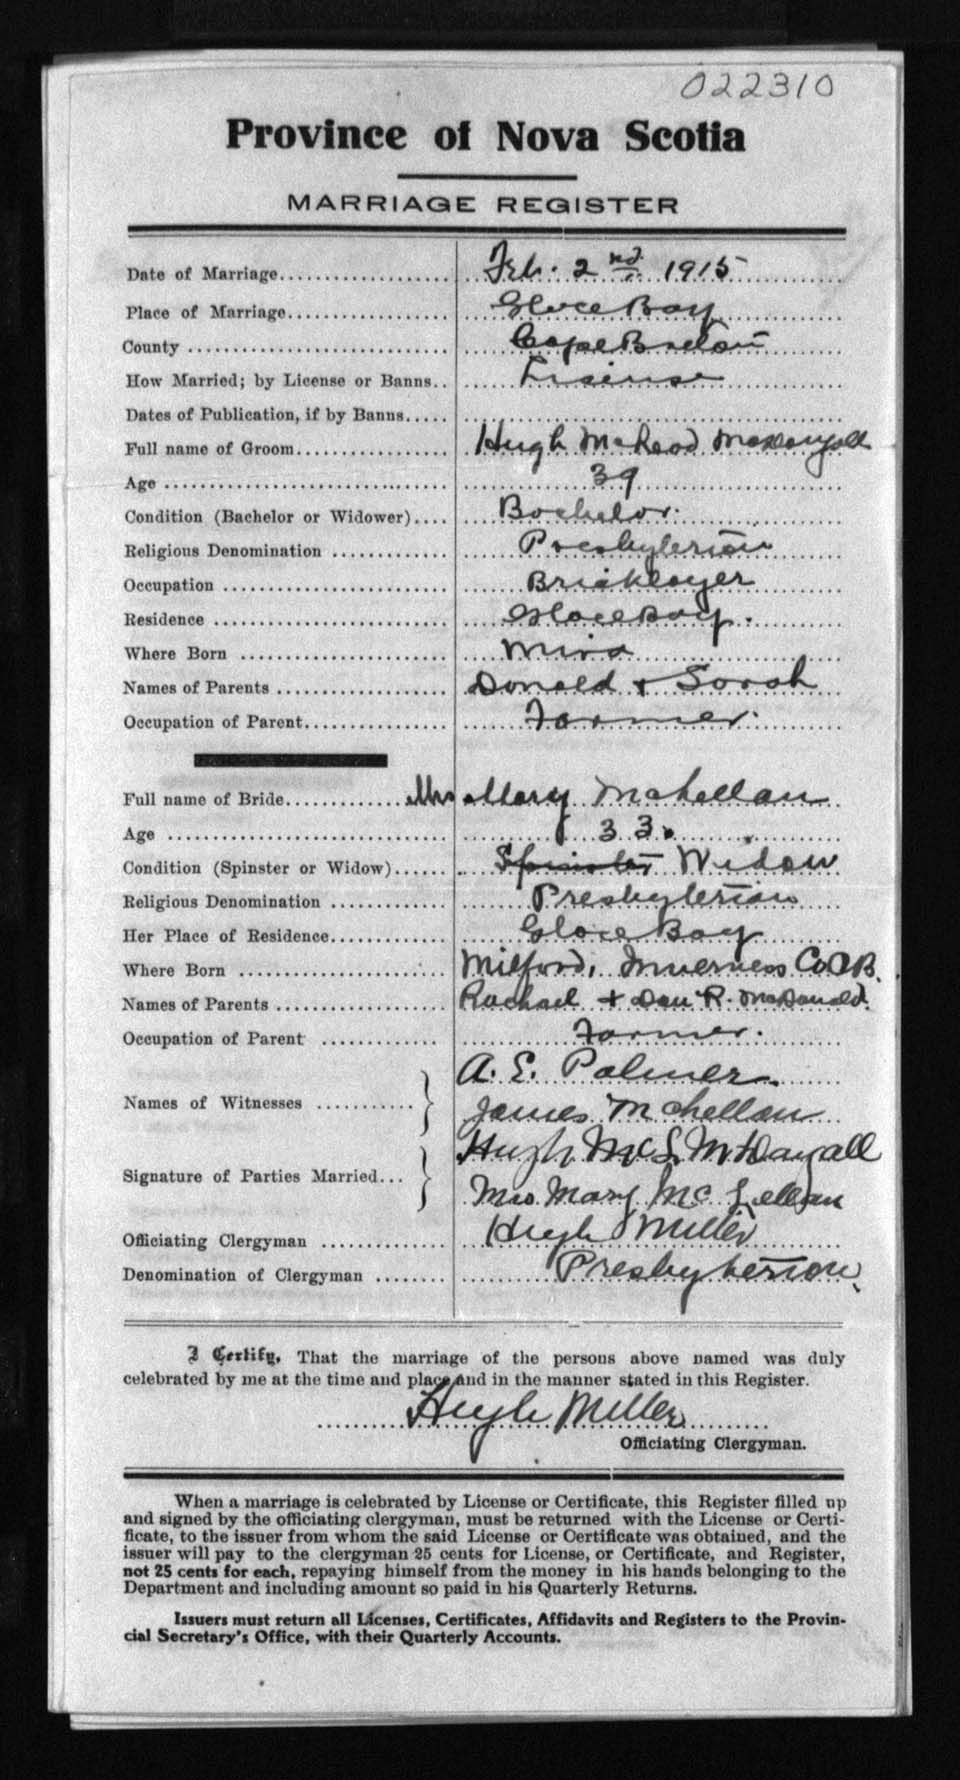 022310
Province of Nova Scotia
MARRIAGE REGISTER
Date of Marriage.................... Feb. 2nd. 1915
Place of Marriage.................. Glace Bay
County ............................. Cape Breton
How Married; by License or Banns.. License
Dates of Publication, if by Banns.....
Full name of Groom................. Hugh McLeod McDougall
Age ................................ 39
Condition (Bachelor or Widower).... Bachelor.
Religious Denomination ............ Presbyterian
Occupation ........................ Bricklayer
Residence ......................... Glace Bay.
Where Born ....................... Mira
Names of Parents .................. Donald & Sarah
Occupation of Parent............... Farmer.
Full name of Bride............ Mrs Mary McLellan
Age ............................... 33.
Condition (Spinster or Widow)...... Spinster Widow
Religious Denomination ............ Presbyterian
Her Place of Residence............. Glace Bay
Where Born ....................... Milford, Inverness Co. C.B.
Names of Parents .................. Rachael & Dan R. McDonald.
Occupation of Parent ............. Farmer.
A. E. Palmer.
Names of Witnesses ...........
James McLellan
Hugh McL. McDougall
Signature of Parties Married...
Mrs Mary McLellan
Officiating Clergyman ............. Hugh Miller
Denomination of Clergyman ........ Presbyterian.
I Certify, That the marriage of the persons above named was duly
celebrated by me at the time and place and in the manner stated in this Register.
Hugh Miller
Officiating Clergyman.
When a marriage is celebrated by License or Certificate, this Register filled up
and signed by the officiating clergyman, must be returned with the License or Certi-
ficate, to the issuer from whom the said License or Certificate was obtained, and the
issuer will pay to the clergyman 25 cents for License, or Certificate, and Register,
not 25 cents for each, repaying himself from the money in his hands belonging to the
Department and including amount so paid in his Quarterly Returns.
Issuers must return all Licenses, Certificates, Affidavits and Registers to the Provin-
cial Secretary's Office, with their Quarterly Accounts.